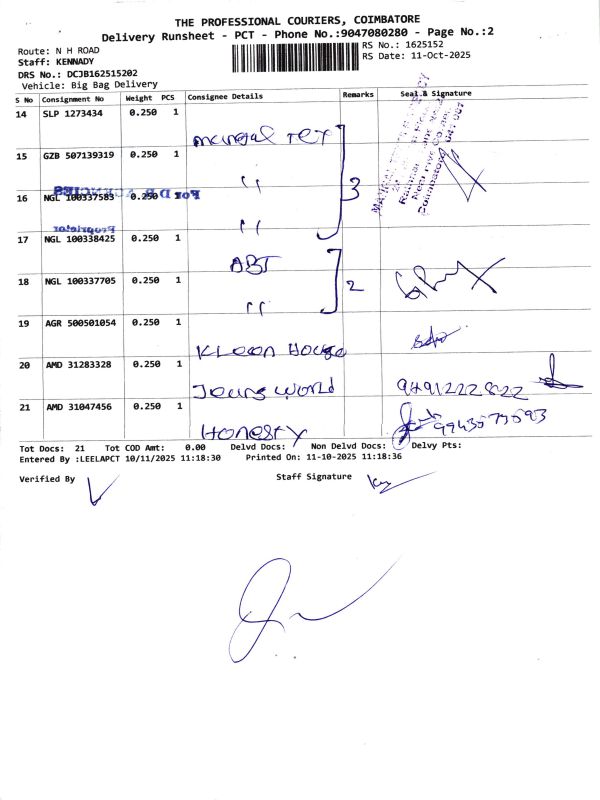 THE PROFESSIONAL COURIERS, COIMBATORE
Delivery Runsheet - PCT - Phone No.:9047080280 - Page No.:2
Route: N H ROAD
RS No.: 1625152
Staff: KENNADY
RS Date: 11-Oct-2025
DRS No.: DCJB162515202
Vehicle: Big Bag Delivery
S No Consignment No Weight PCS Consignee Details Remarks Seal & Signature
14 SLP 1273434 0.250 1
15 GZB 507139319 0.250 1 "
16 NGL 100337583 0.250 1 " 3
For D.B. AGENCIES
Proprietor
17 NGL 100338425 0.250 1 ABT
18 NGL 100337705 0.250 1 " 2
19 AGR 500501054 0.250 1 Kleen House
20 AMD 31283328 0.250 1 Jeans World
21 AMD 31047456 0.250 1 Honesty
Coimbatore
Tot Docs: 21 Tot COD Amt: 0.00 Delvd Docs: Non Delvd Docs: Delvy Pts:
Entered By :LEELAPCT 10/11/2025 11:18:30 Printed On: 11-10-2025 11:18:36
Verified By Staff Signature